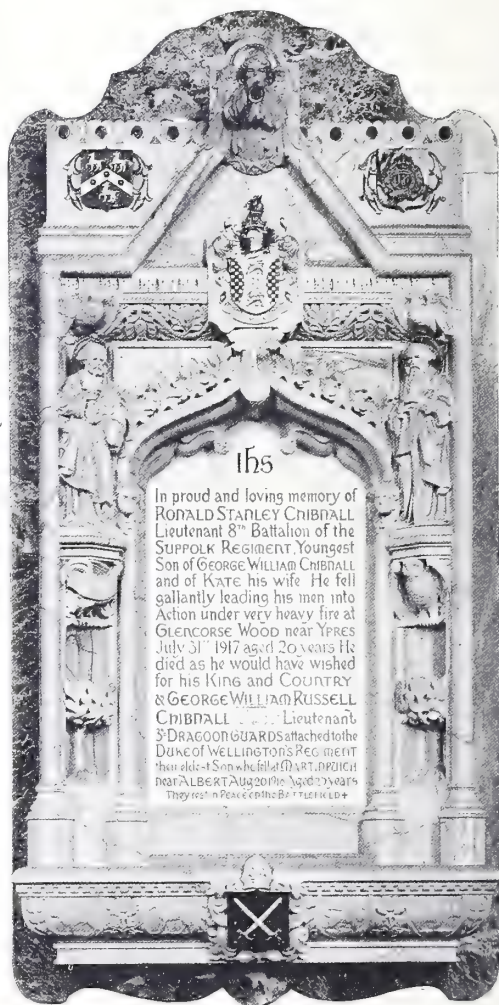 Ihs
In proud and loving memory of
RONALD STANLEY CHIBNALL
Lieutenant 8TH Battalion of the
SUFFOLK REGIMENT, Youngest
Son of GEORGE WILLIAM CHIBNALL
and of KATE his wife He fell
gallantly leading his men into
Action under very heavy fire at
GLENCORSE WOOD near YPRES
July 31ST 1917 aged 20 years He
died as he would have wished
for his KING and COUNTRY
& GEORGE WILLIAM RUSSELL
CHIBNALL Lieutenant
3RD DRAGOON GUARDS attached to the
DUKE OF WELLINGTON'S REGIMENT
their eldest Son who fell at MARTINPUICH
near ALBERT Aug Aged years
They rest in Peace on the BATTLEFIELD +